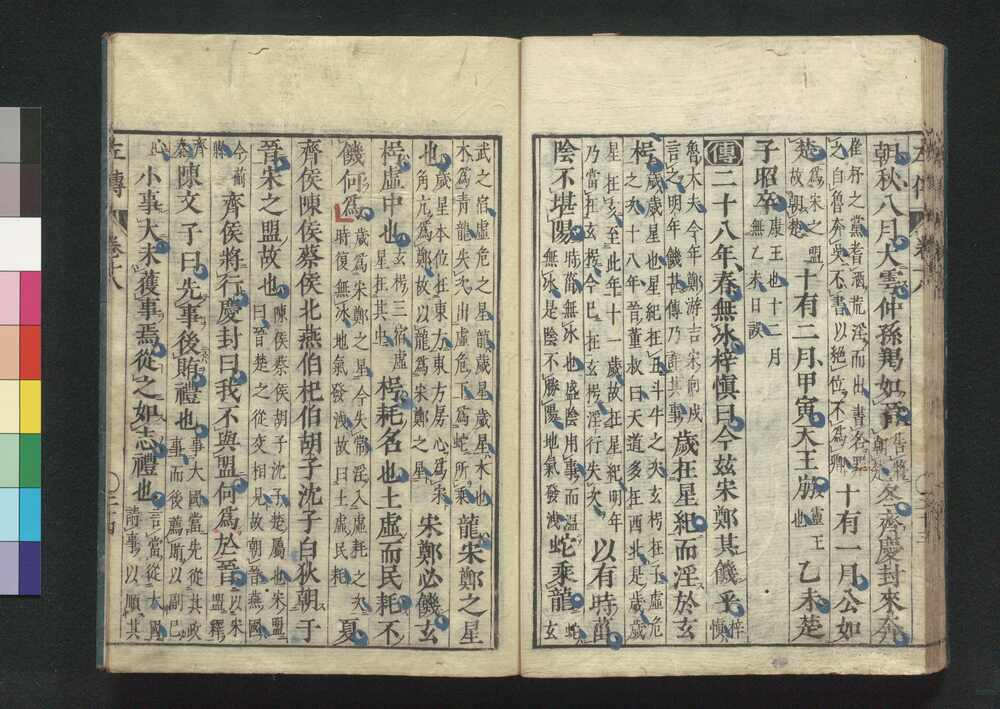 朝秋八月大雩仲孫羯如晉告將朝楚冬齊慶封來奔
崔杼之黨耆酒荒淫而出書名罪
之自魯奔吳不書以絕位不為卿
十有一月公如
楚為宋之盟故朝楚十有二月甲寅天王崩靈王也乙未楚
子昭卒康王也十二月無乙未日誤
傳二十八年春無冰梓慎曰今茲宋鄭其饑乎梓慎
魯大夫今年鄭游吉宋向戌
言之明年饑甚傳乃詳其事
歲在星紀而淫於玄
枵歲歲星也星紀在丑斗牛之次玄枵在子虛危
之次十八年晉董叔曰天道多在西北是歲歲
星在亥至此年十一歲故在星紀明年
乃當在玄枵今已在玄枵淫行失次
以有時菑
陰不堪陽時菑無冰也盛陰用事而溫
無冰是陰不勝陽地氣發洩
蛇乘龍蛇玄
武之宿虛危之星龍歲星歲星木也
木為青龍失次出虛危下為蛇所乘
龍宋鄭之星
也歲星本位在東方東方房心為宋
角亢為鄭故以龍為宋鄭之星
宋鄭必饑玄
枵虛中也玄枵三宿虛星在其中枵耗名也土虛而民耗不
饑何為歲為宋鄭之星今失常淫入虛耗之次
時復無冰地氣發洩故曰土虛民耗
夏
齊侯陳侯蔡侯北燕伯杞伯胡子沈子白狄朝于
晉宋之盟故也陳侯蔡侯胡子沈子楚屬也宋盟
曰晉楚之從交相見故朝晉燕國
今薊縣齊侯將行慶封曰我不與盟何為於晉以宋盟釋
齊秦陳文子曰先事後賄禮也事大國當先從其政
事而後薦賄以副己
心小事大未獲事焉從之如志禮也言當從大國
請事以順其
左傳 卷十八 三十四